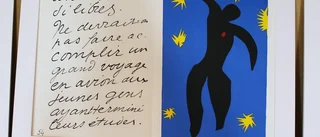 si libres.
Ne devrait-on
pas faire ac-
complir un
grand voyage
en avion aux
jeunes gens
ayant terminé
leurs études.
54